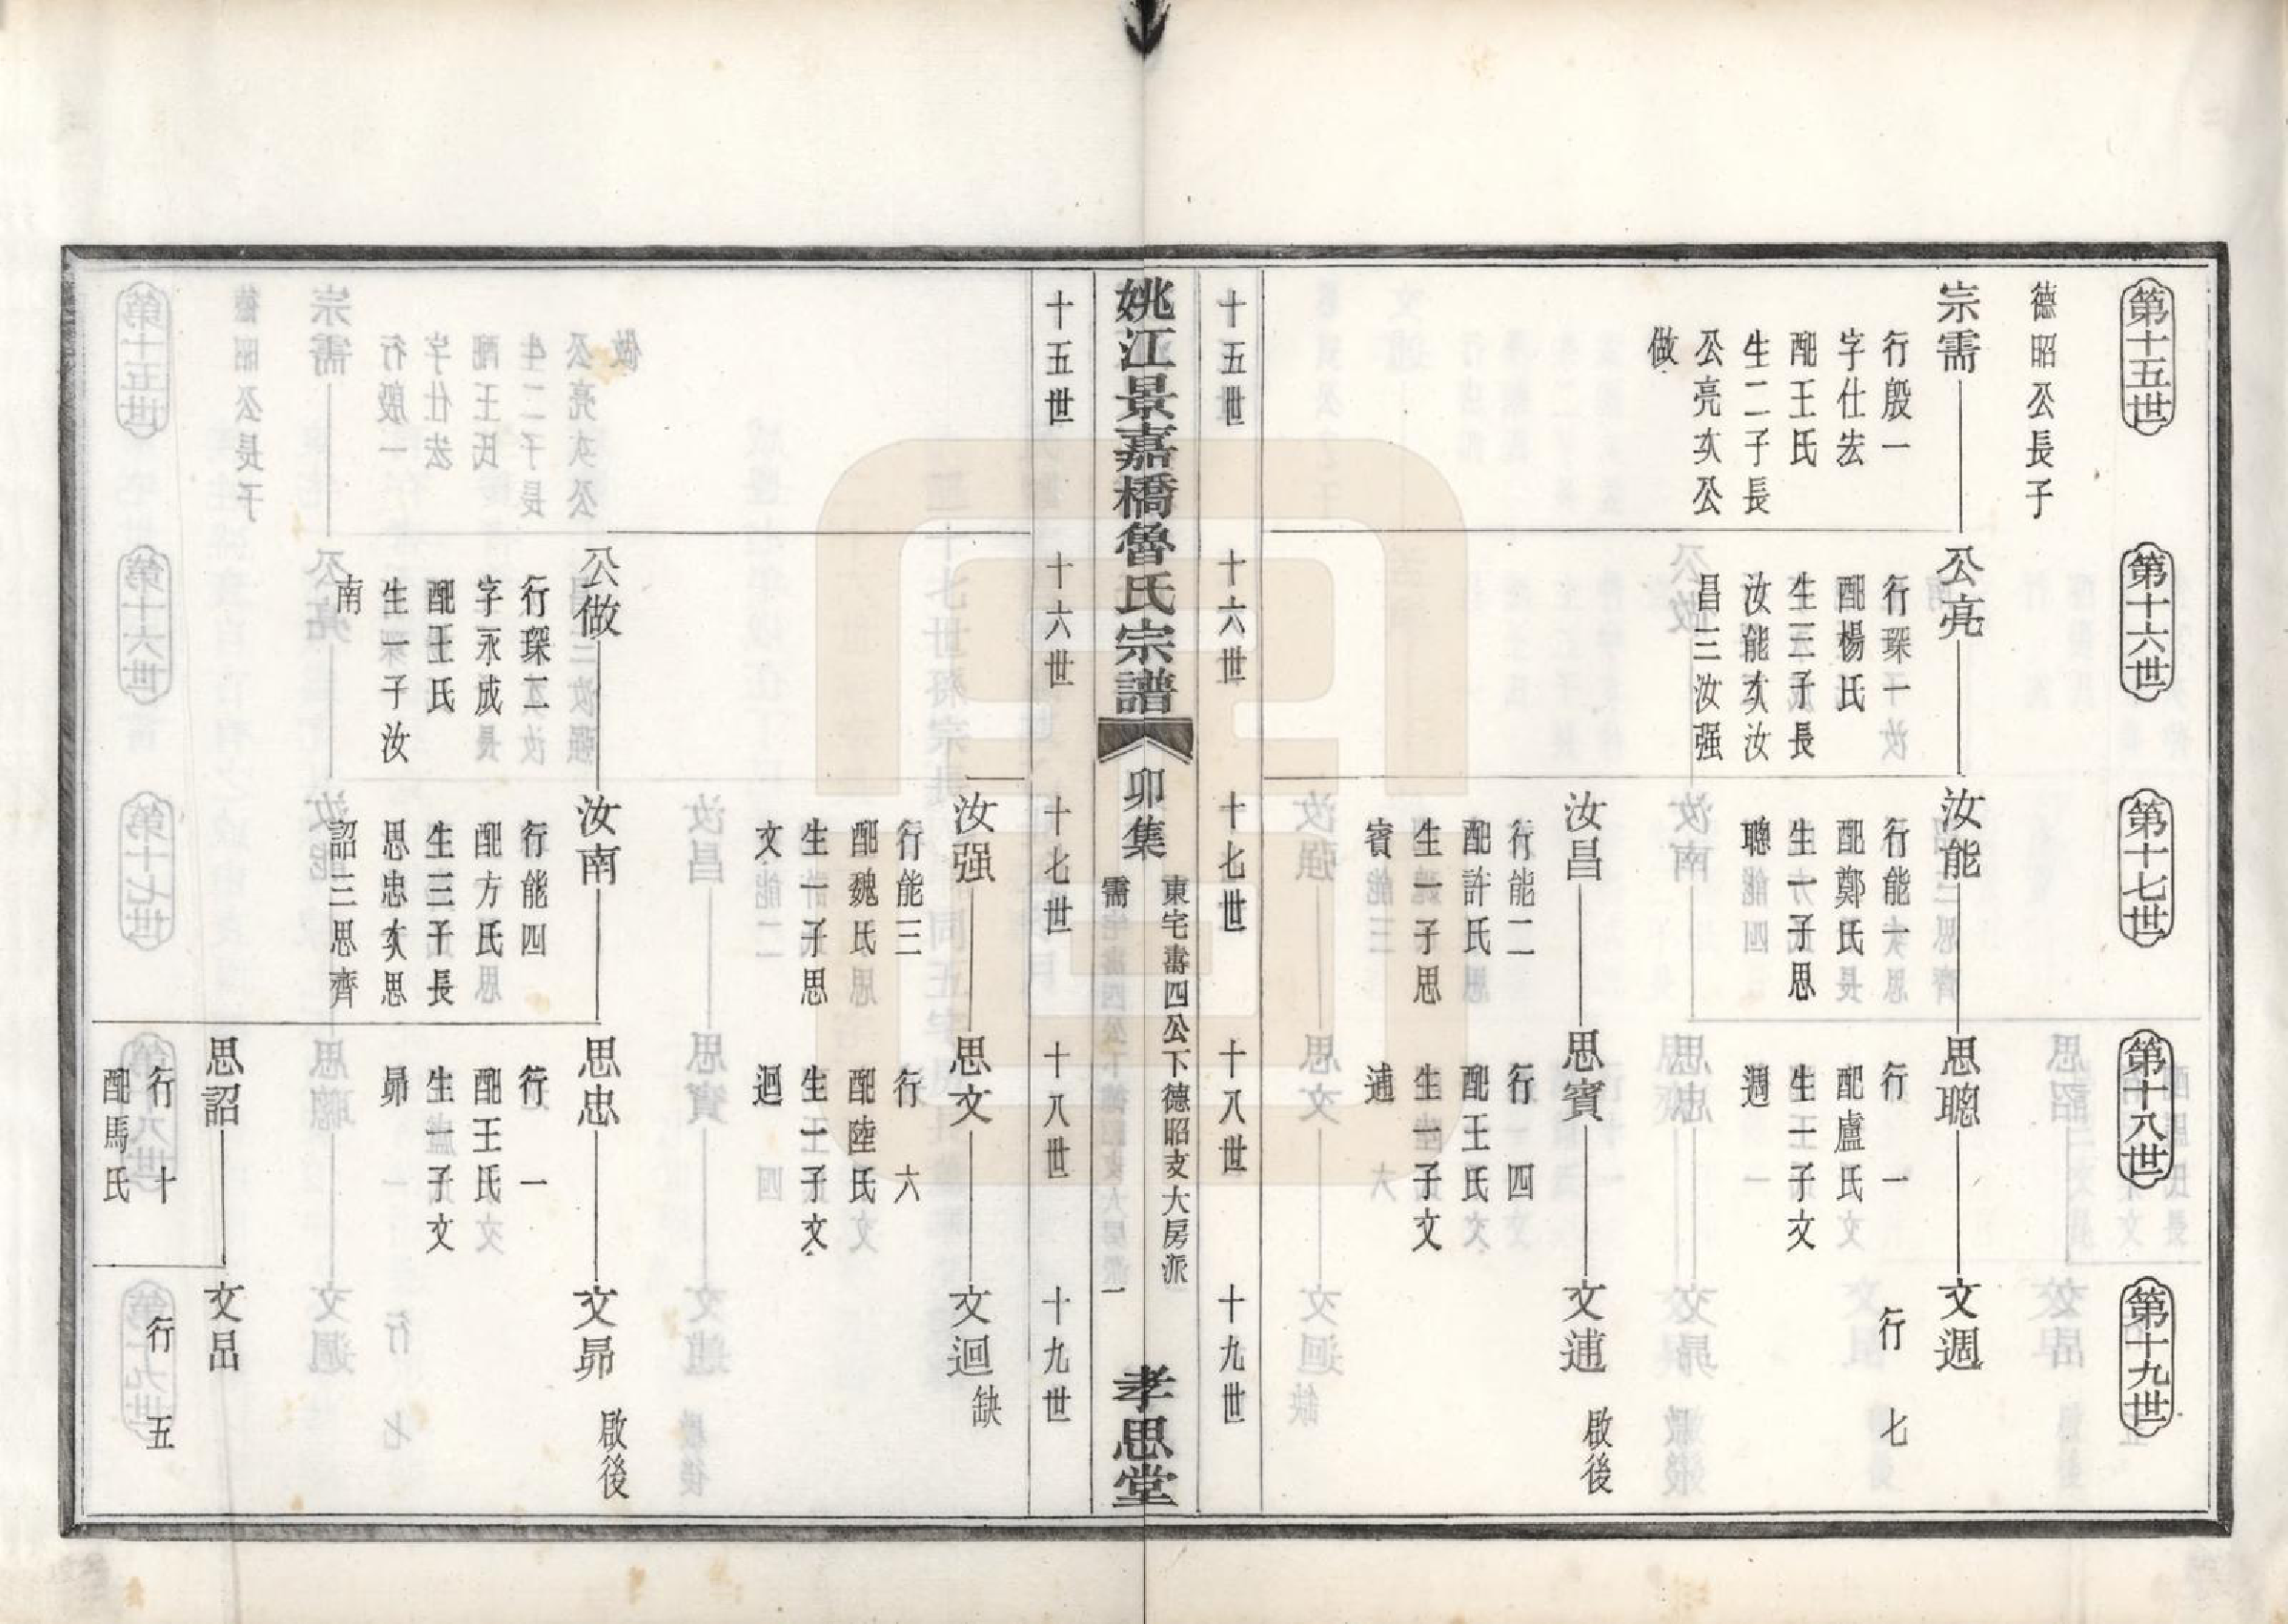 第十五世
第十六世
第十七世
第十八世
第十九世
德昭公長子
宗需
行殷一
字仕宏
配王氏
生二子長
公亮次公
做
公亮
行琛一
配楊氏
生三子長
汝能次汝
昌三汝强
汝能
行能一
配鄭氏
生一子思
聰
思聰
行 一
配盧氏
生一子文
週
文週
行 七
汝昌
行能二
配許氏
生一子思
賓
思賓
行 四
配王氏
生一子文
逋
文逋
啟後
十五世
十六世
十七世
十八世
十九世
姚江景嘉橋魯氏宗譜
卯集
東宅壽四公下德昭支大房派
需
一
孝思堂
十五世
十六世
十七世
十八世
十九世
汝强
行能三
配魏氏
生一子思
文
思文
行 六
配陸氏
生一子文
迴
文迴
缺
公做
行琛二
字永成
配王氏
生一子汝
南
汝南
行能四
配方氏
生三子長
思忠次思
詔三思齊
思忠
行 一
配王氏
生一子文
昴
文昴
啟後
思詔
行 十
配馬氏
文昌
行 五